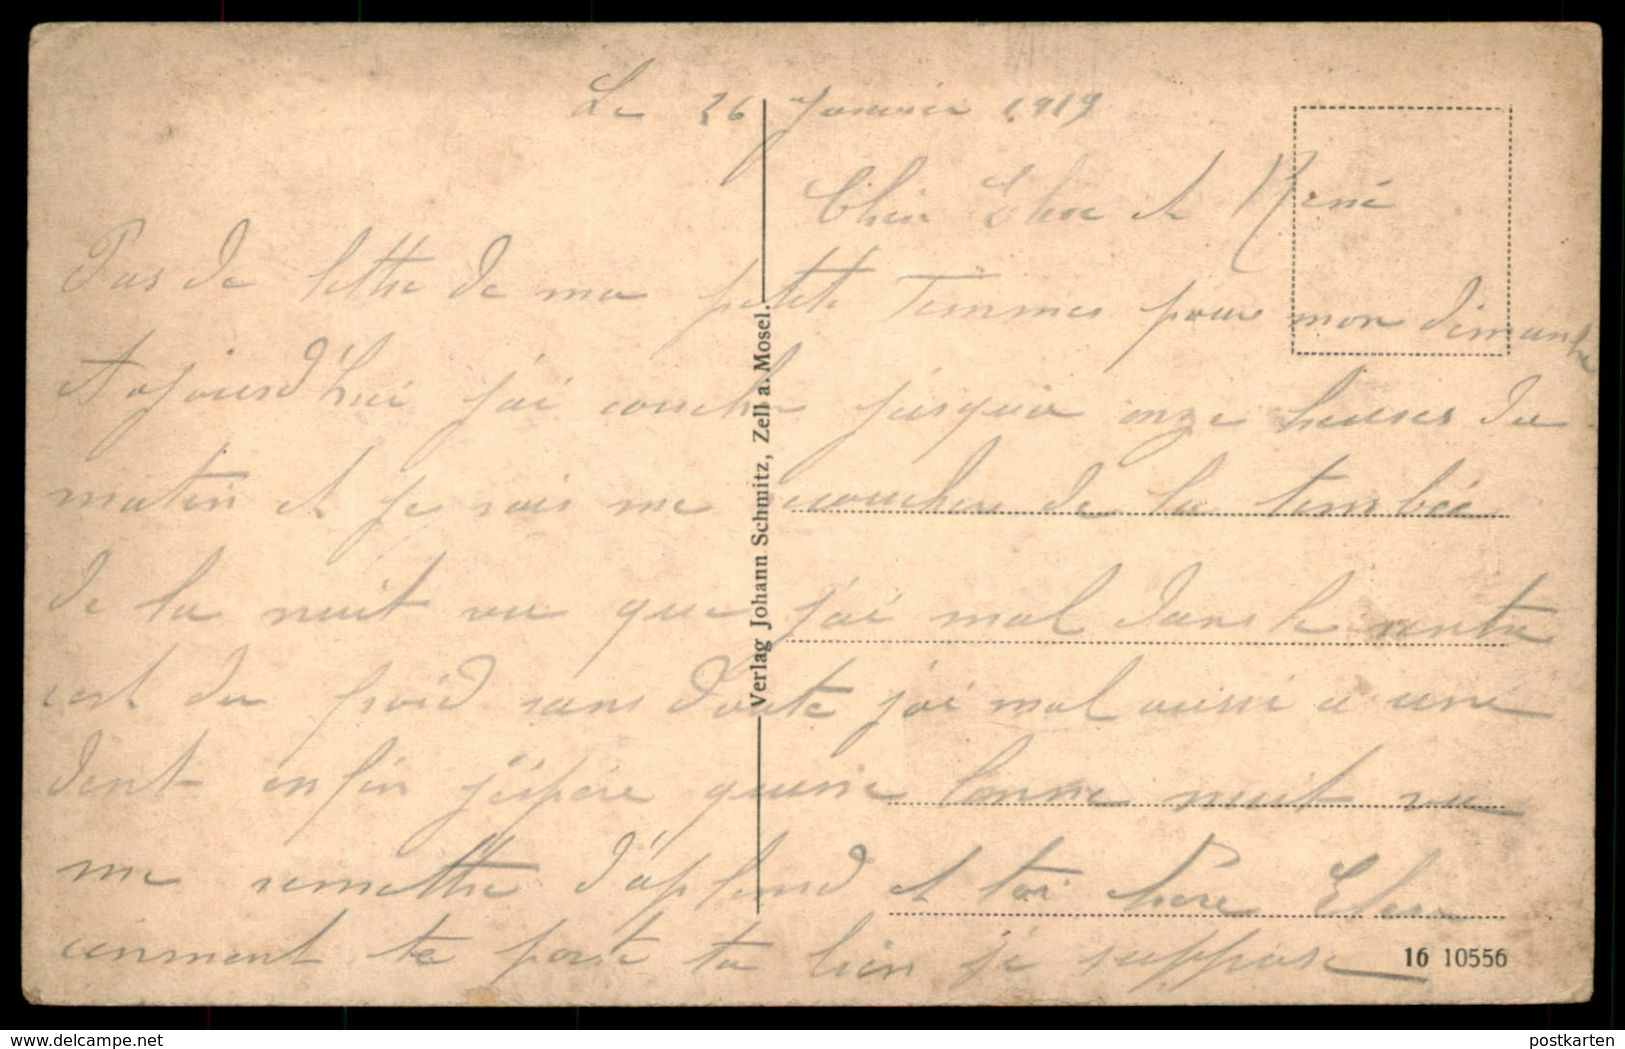 Le 26 Janvier 1919
Cher Elise et René
Pas de lettre de ma petite Femmes pour mon dimanche
Aujourd'hui j'ai coucher jusqua onze heures du
matin et je vais me coucher de la tombée
de la nuit vu que j'ai mal dans le ventre
cest du froid sans doute j'ai mal aussi a une
dent enfin j'éspére quune bonne nuit va
me remettre d'aplond et toi chere
comment te porte tu bien je suppose
Verlag Johann Schmitz, Zell a. Mosel.
16 10556
www.delcampe.net
postkarten